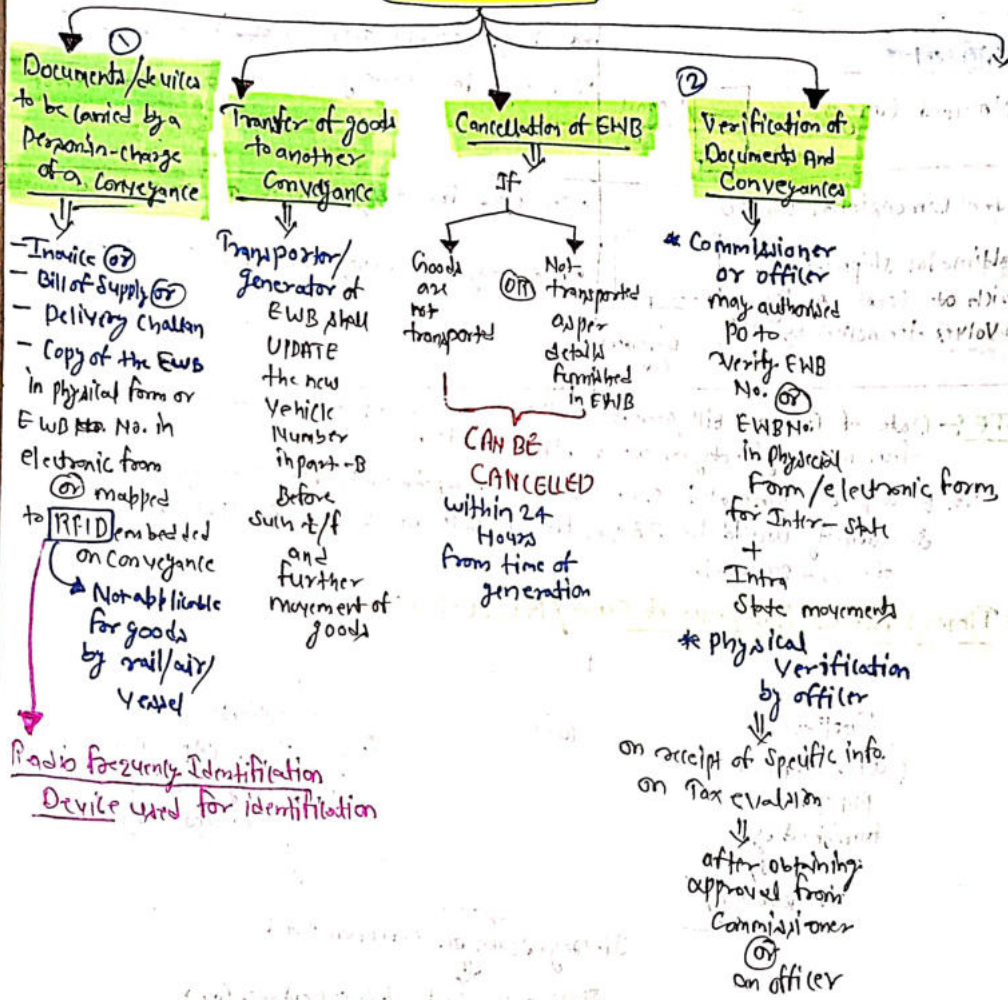 ①
Documents/devices
to be carried by a
person-in-charge
of a Conveyance
-Invoice or
- Bill of Supply or
- Delivery Challan
- Copy of the EWB
in physical form or
EWB No. in
electronic from
or mapped
to RFID embedded
on Conveyance
Not applicable
for goods
by rail/air/
vessel
Radio frequency Identification
Device used for identification
Transfer of goods
to another
Conveyance
Transportor/
generator of
EWB shall
UPDATE
the new
Vehicle
Number
in part-B
Before
such t/f
and
further
movement of
goods
Cancellation of EWB
If
Goods
are
not
transported
OR
Not
transported
as per
details
furnished
in EWB
CAN BE
CANCELLED
within 24
Hours
from time of
generation
②
Verification of
Documents And
Conveyances
* Commissioner
or officer
may authorised
PO to
Verify EWB
No. or
EWB No.
in Physcial
Form/electronic form
for Inter-State
+
Intra
State movements
* Physical
Verification
by officer
on receipt of Specific info.
on Tax evasion
after obtaining
approval from
Commissioner
or
an officer